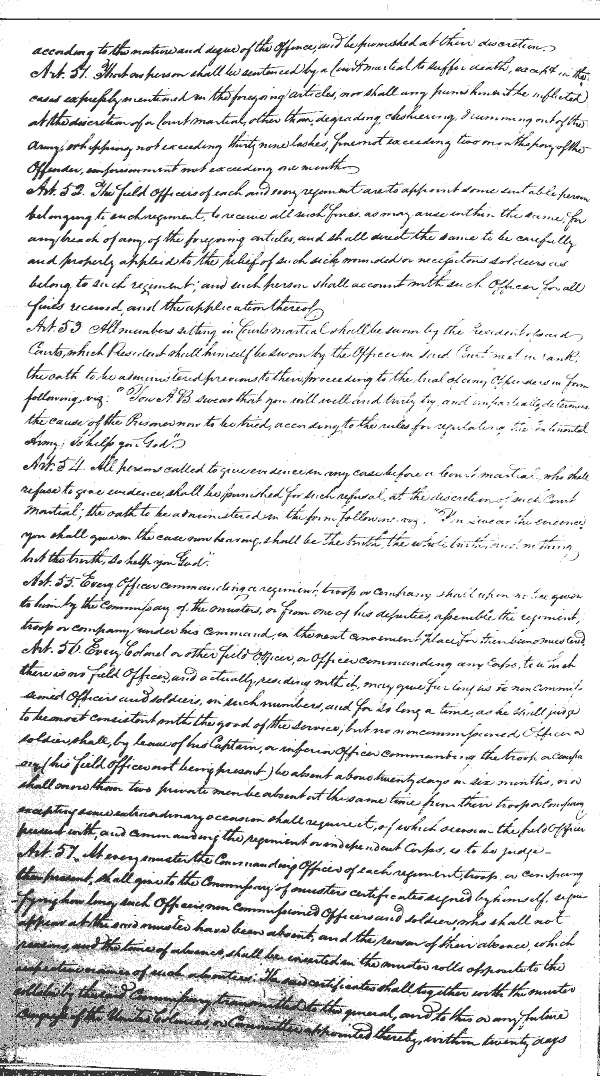 according to the nature and degree of the Offence, and be punished at their discretion.
Art. 51. That no person shall be sentenced by a Court martial to suffer death, except in the
cases expressly mentioned in the foregoing articles, nor shall any punishment be inflicted
at the discretion of a Court martial, other than, degrading, cashiering, drumming out of the
Army, whipping, not exceeding thirty nine lashes, fine not exceeding two months pay of the
Offender, imprisonment not exceeding one month.
Art. 52. The field Officers of each and every regiment are to appoint some suitable person
belonging to such regiment, to receive all such fines, as may arise within the same, for
any breach of any of the foregoing articles, and shall direct the same to be carefully
and properly applied to the relief of such sick, wounded or necessitous soldiers as
belong to such regiment; and such person shall account with such Officer for all
fines received, and the application thereof.
Art. 53 All members sitting in Courts martial shall be sworn by the President of said
Courts, which President shall himself be sworn by the Officer in said Court next in rank:
the oath to be administered previous to their proceeding to the trial of any Offenders in form
following, viz: "You A B swear that you will well and truly try, and impartially determine
the cause of the Prisoner now to be tried, according to the rules for regulating the Continental
Army; So help you God".
Art. 54. All persons called to give evidence in any case before a Court martial, who shall
refuse to give evidence, shall be punished for such refusal, at the discretion of such Court
martial; the oath to be administered in the form following, viz. "You swear the evidence
you shall give in the case now hearing, shall be the truth, the whole truth, and nothing
but the truth, so help you God".
Art. 55. Every Officer commanding a regiment, troop or company shall upon notice given
to him by the Commissary of the musters, or from one of his deputies, assemble the regiment,
troop or company under his command, in the next convenient place for their being mustered.
Art. 56. Every Colonel or other field Officer, or Officer commanding any Corps, to which
there is no field Officer, and actually residing with it, may give furloughs to non commis-
sioned Officers and soldiers, in such numbers, and for so long a time, as he shall judge
to be most consistent with the good of the service, but no non commissioned Officer or
soldier, shall, by leave of his Captain, or inferior Officer commanding the troop or compa
ny (his field Officer not being present) be absent above twenty days in six months, nor
shall more than two private men be absent at the same time from their troop or company
excepting some extraordinary occasion shall require it, of which occasion the field Officer
present with, and commanding the regiment or independent Corps, is to be judge.
Art. 57. At every muster the Commanding Officer of each regiment, troop, or company
then present, shall give to the Commissary of musters certificates signed by himself, signi
fying how long such Officers, non Commissioned Officers and soldiers who shall not
appear at the said muster have been absent, and the reason of their absence, which
reasons, and the time of absence, shall be inserted in the muster rolls opposite to the
respective names of such absentees: The said certificates shall together with the muster
rolls be by the said Commissary transmitted to the general, and to this or any future
Congress of the United Colonies, or Committee appointed thereby, within twenty days